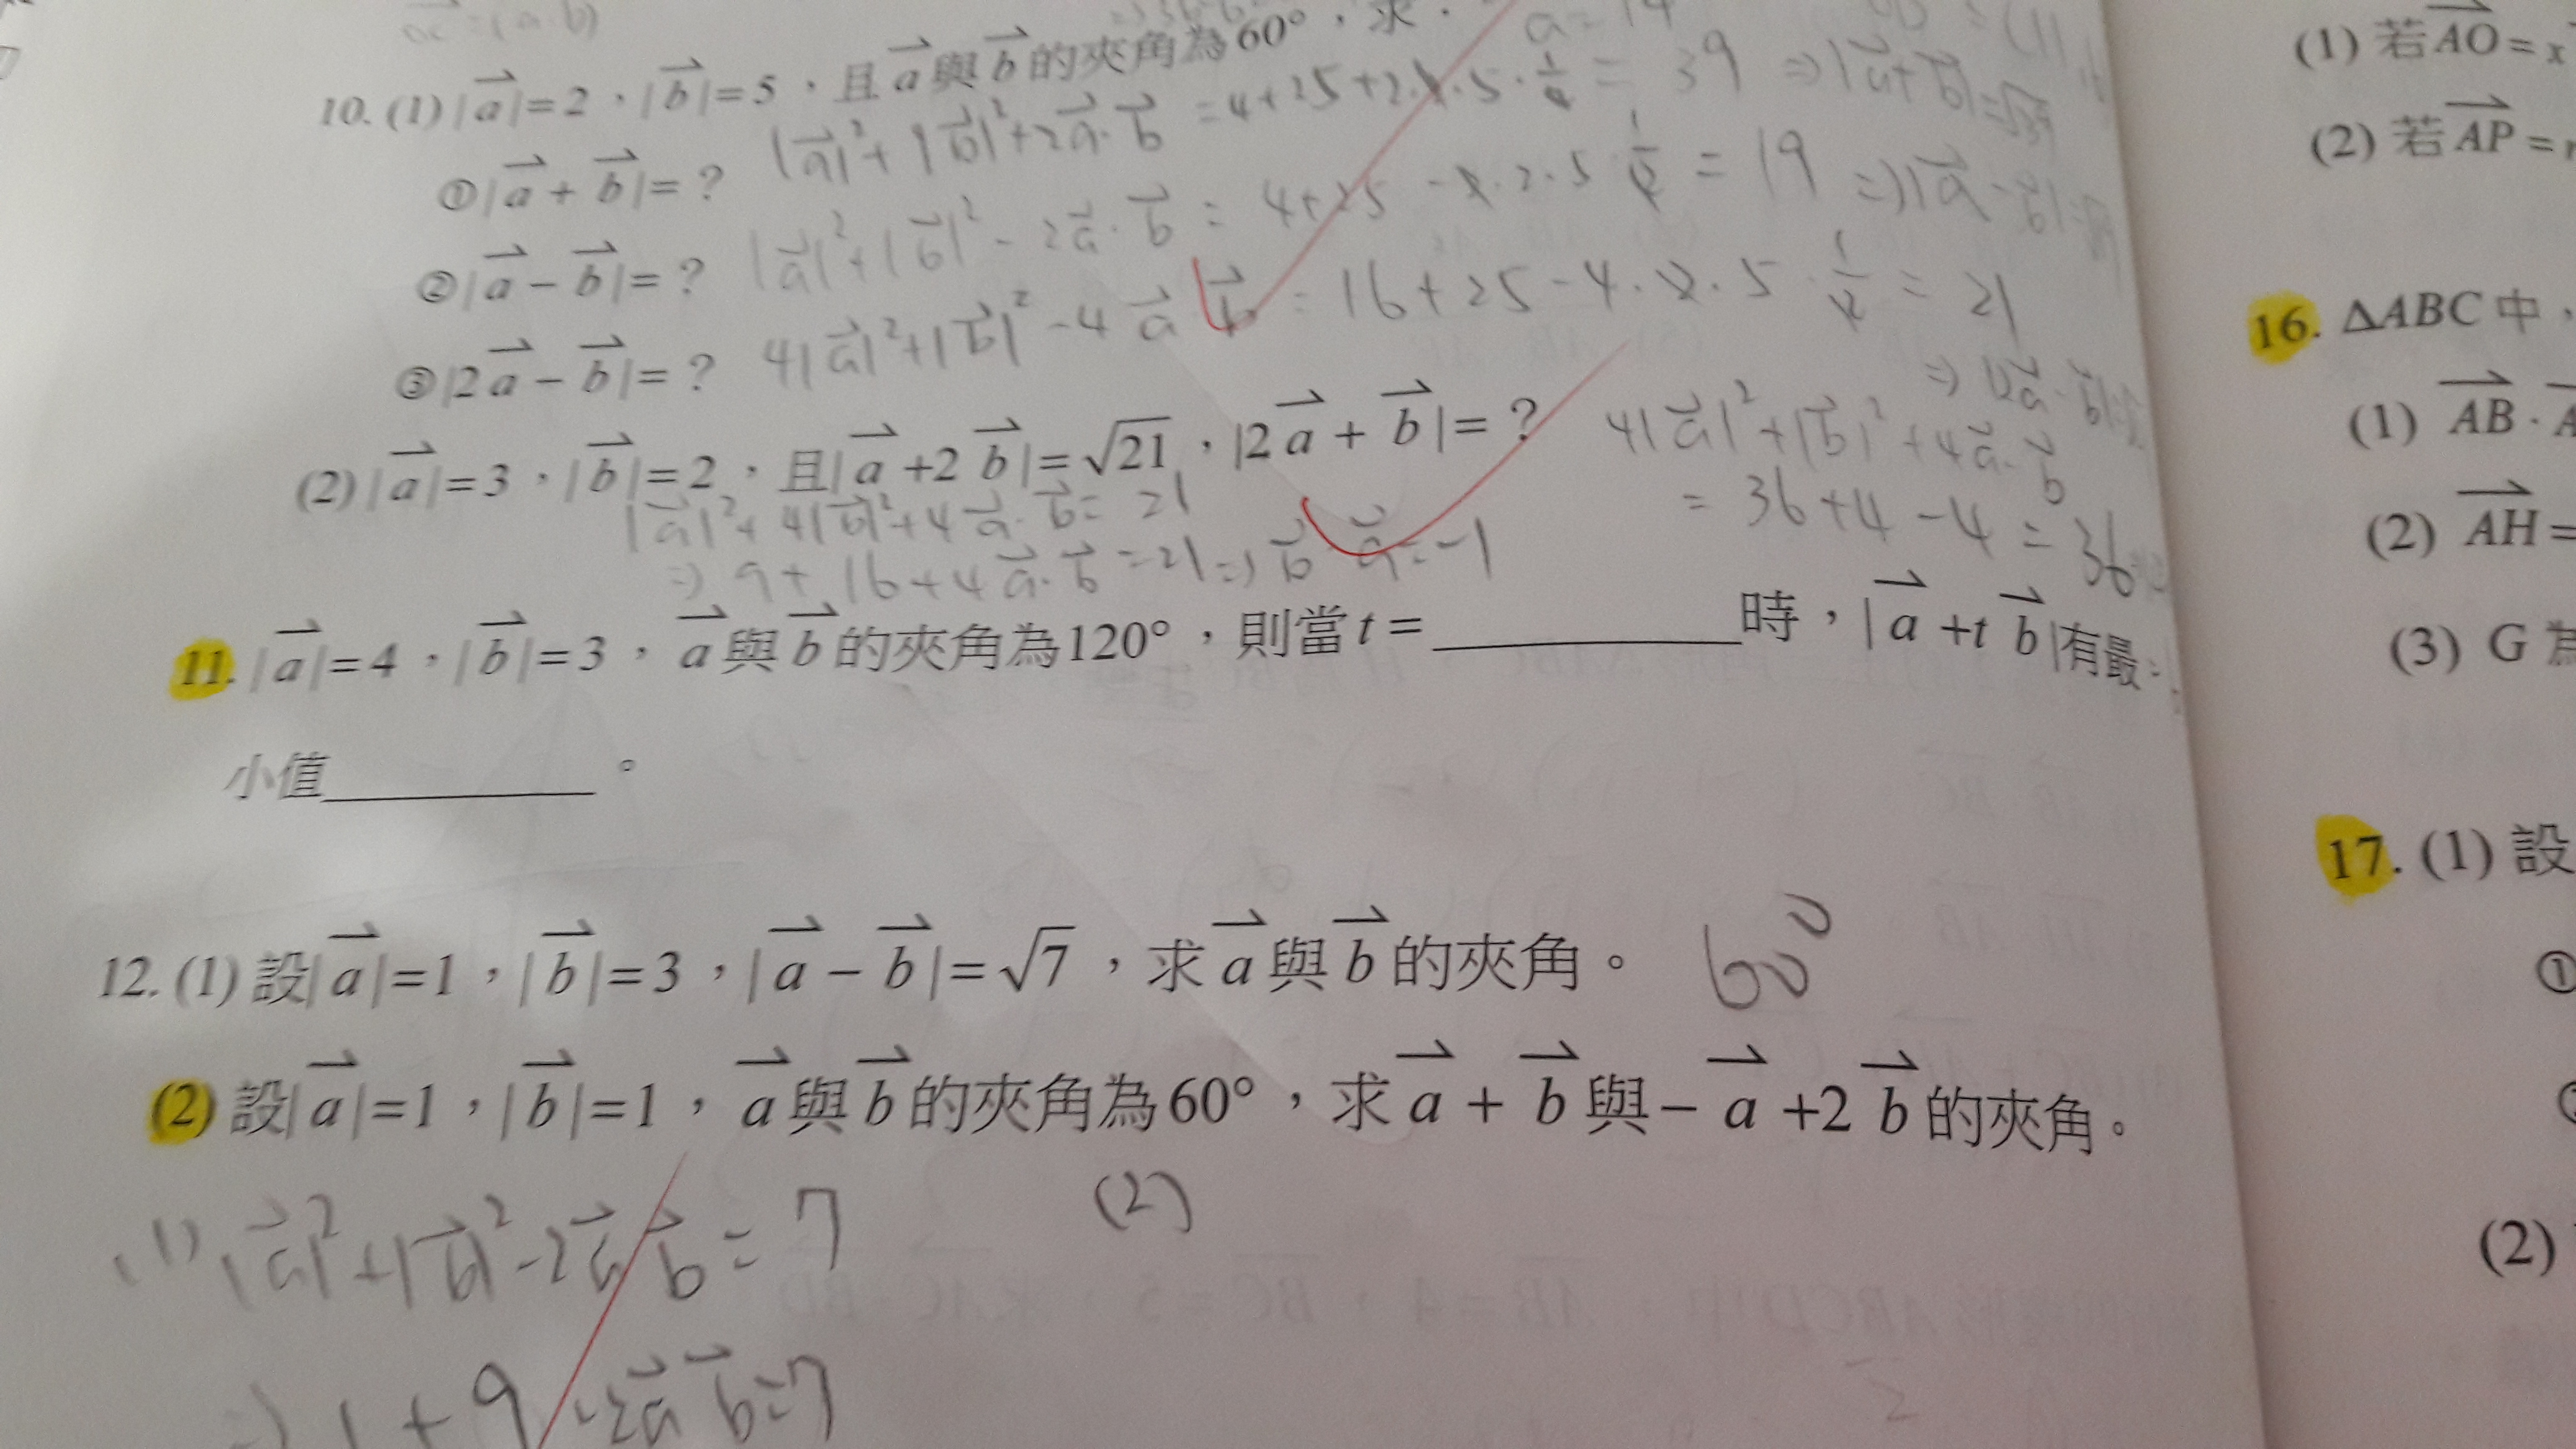 10. (1) |a|=2，|b|=5，且 a 與 b 的夾角為60°，求
①|a + b|= ? |a|²+|b|²+2a·b = 4+25+2·2·5·1/2 = 39 ⇒ |a+b|=√39
②|a − b|= ? |a|²+|b|²-2a·b = 4+25-2·2·5 1/2 = 19 ⇒ |a-b|=
③|2a − b|= ? 4|a|²+|b|²-4 a b = 16+25-4·2·5·1/2 = 21
⇒ |2a-b|=
(2) |a|=3，|b|=2，且|a+2b|=√21，|2a + b|= ? 4|a|²+|b|²+4a·b
|a|²+4|b|²+4a·b=21
= 36+4-4=36
⇒ 9+16+4a·b=21⇒b·a=-1
11. |a|=4，|b|=3，a 與 b 的夾角為120°，則當 t = 時，|a+tb|有最
小值 。
12. (1) 設|a|=1，|b|=3，|a − b|=√7，求 a 與 b 的夾角。 60°
(2) 設|a|=1，|b|=1，a 與 b 的夾角為60°，求 a + b 與 −a+2b 的夾角。
(1) |a|²+|b|²-2a b=7
(2)
⇒ 1+9-2a b=7
(1) 若AO = x
(2) 若AP =
16. ΔABC 中，
(1) AB·
(2) AH=
(3) G 為
17. (1) 設
①
(2)